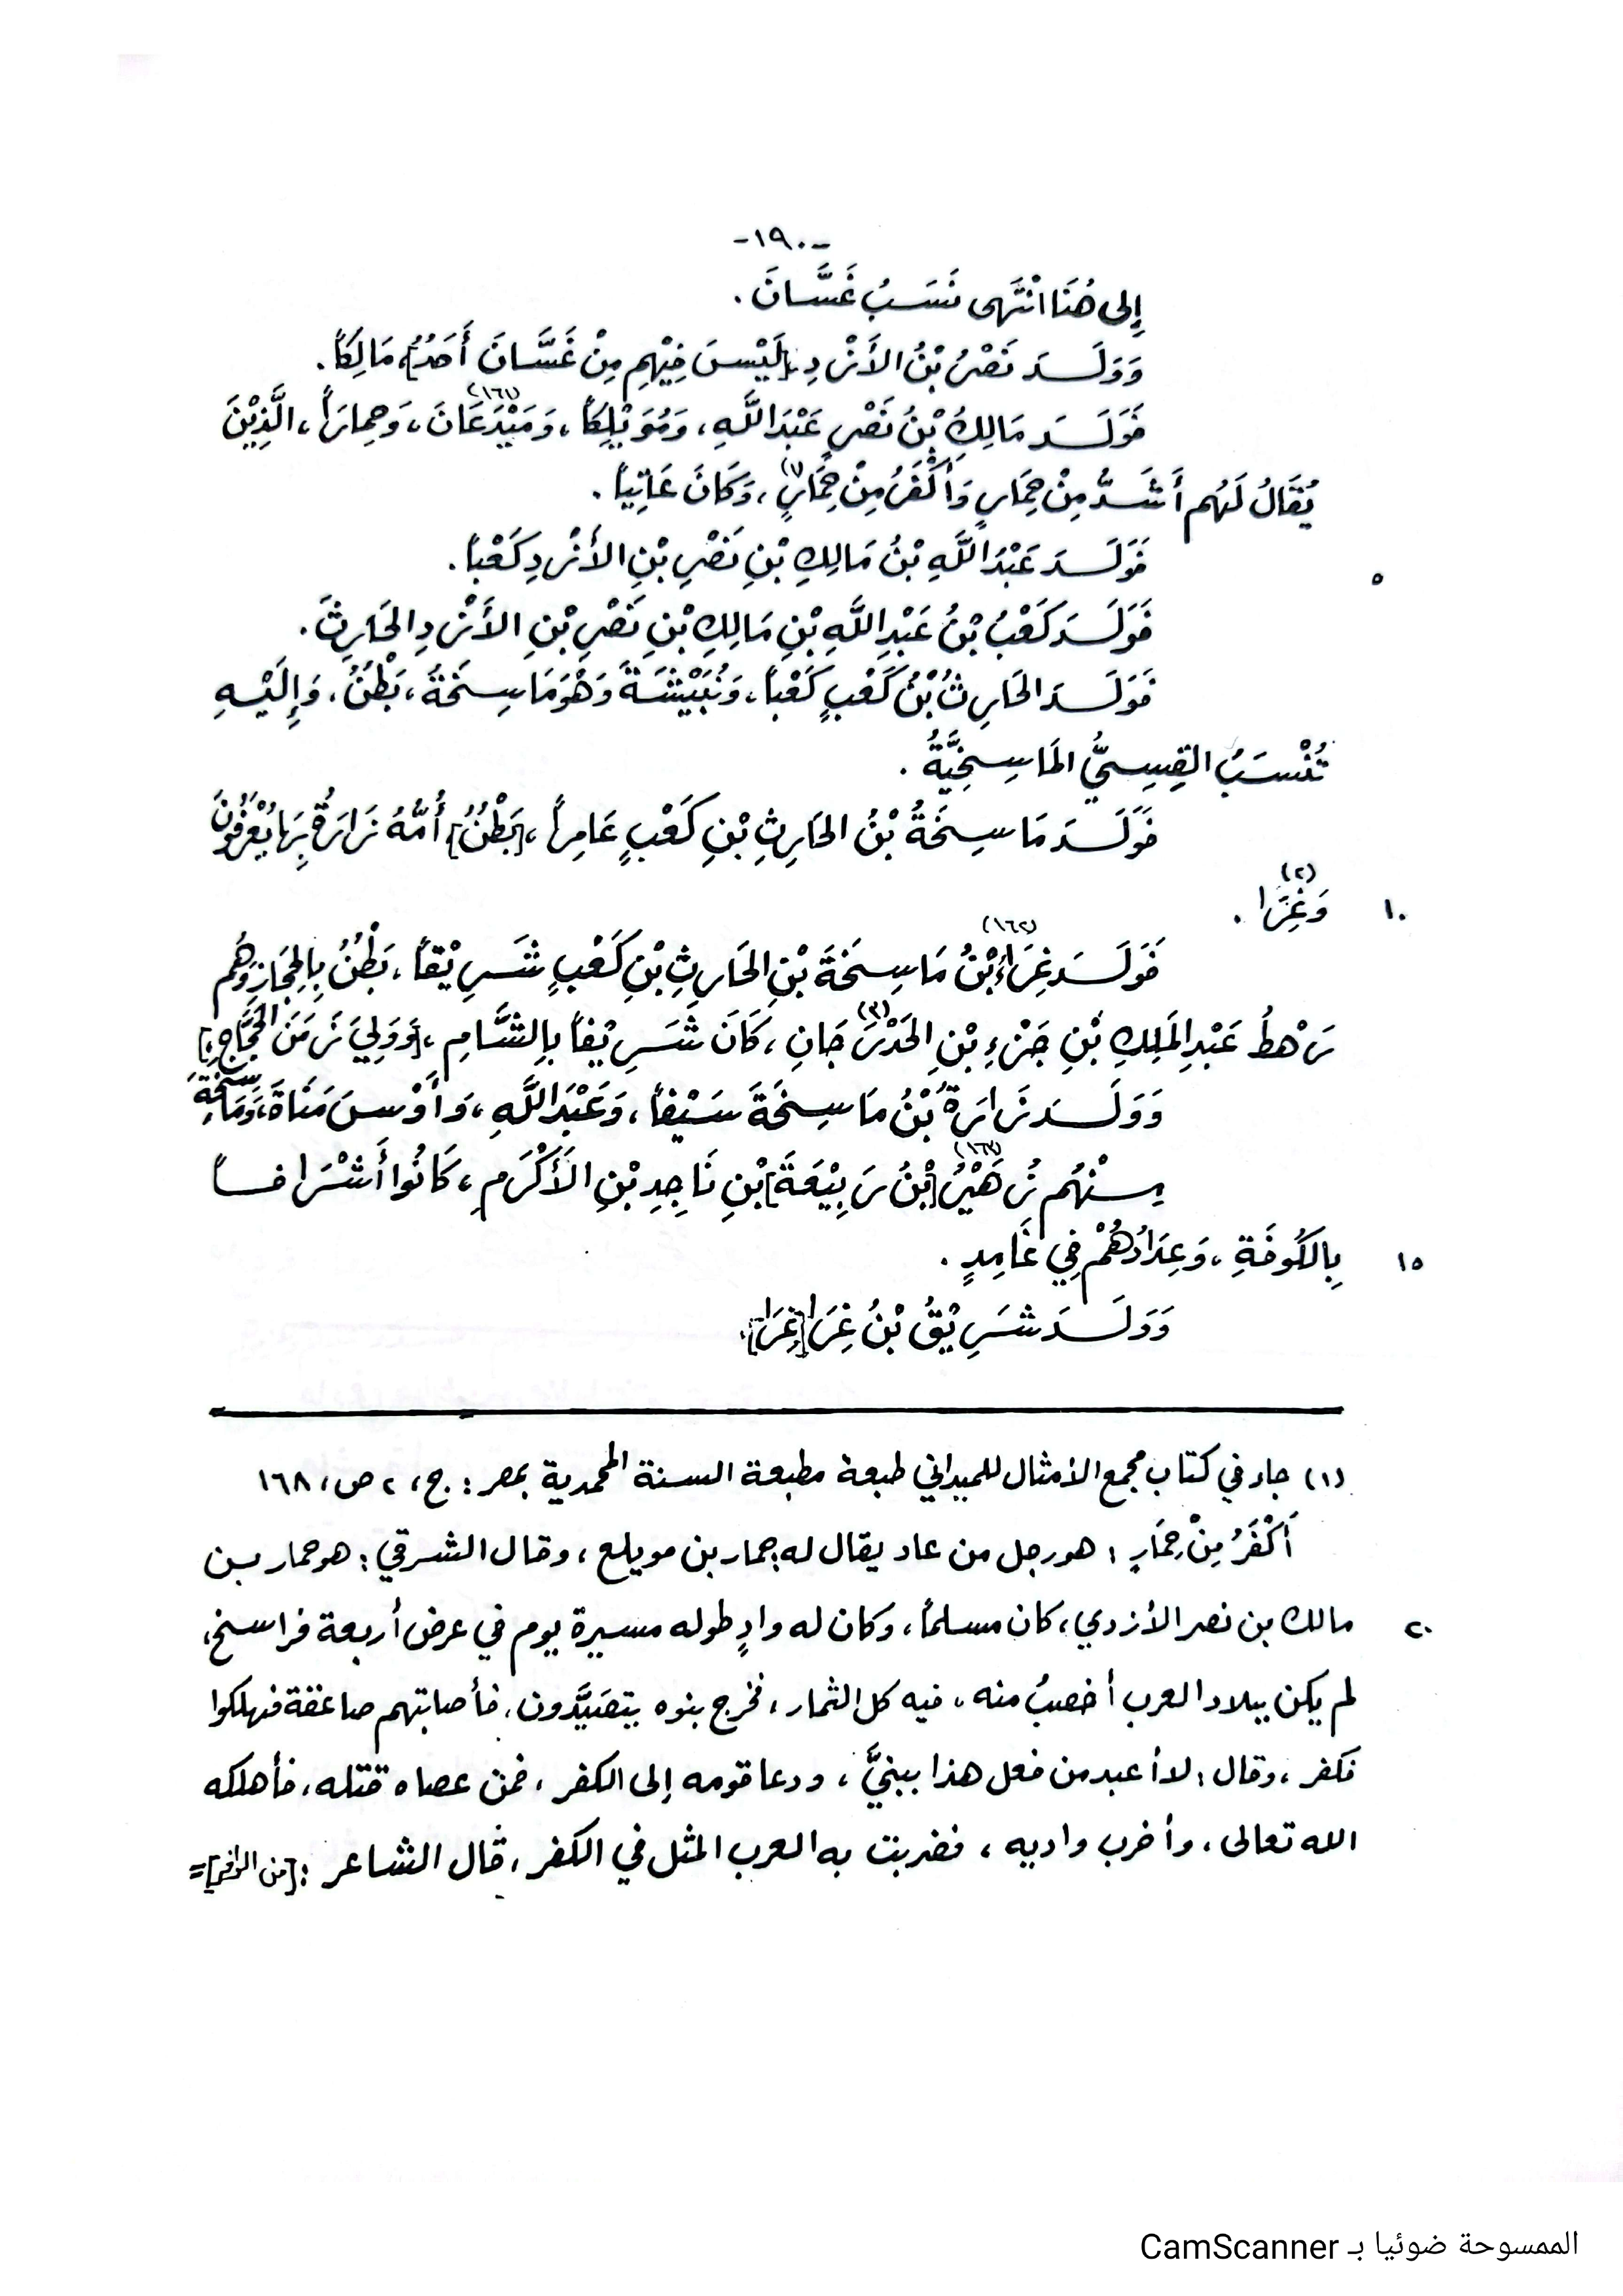 -١٩٠-
إِلى هُنَا انْتَهى نَسَبُ غَسَّانَ .
وَوَلَــدَ نَصْرُ بْنُ الأَزْدِ ،[لَيْسَ فِيْهِم مِنْ غَسَّانَ أَحَدٌ]، مَالِكَاً .
فَوَلَــدَ مَالِكُ بْنُ نَصْرٍ عَبْدَ اللَّهِ ، وَمُوَيْلِكَاً ، وَمَيْدَعَانَ (١٦١) ، وَحِمَارَاً ، الَّذِيْنَ
يُقَالُ لَهُم أَشَــدُّ مِنْ حِمَارٍ وَأَكْفَرُ مِنْ حِمَارٍ (١) ، وَكَانَ عَاتِيَاً .
فَوَلَــدَ عَبْدُ اللَّهِ بْنُ مَالِكِ بْنِ نَصْرِ بْنِ الأَزْدِ كَعْبَاً . ٥
فَوَلَــدَ كَعْبُ بْنُ عَبْدِ اللَّهِ بْنِ مَالِكِ بْنِ نَصْرِ بْنِ الأَزْدِ الحَارِثَ .
فَوَلَــدَ الحَارِثُ بْنُ كَعْبٍ كَعْبَاً ، وَنُبَيْشَــةَ وَهْوَ مَاسِــخَةُ ، بَطْنٌ ، وَإِلَيْــهِ
تُنْسَــبُ القِسِــيُّ المَاسِــخِيَّةُ .
فَوَلَــدَ مَاسِــخَةُ بْنُ الحَارِثِ بْنِ كَعْبٍ عَامِرَاً ،[بَطْنٌ] أُمُّهُ زَرَارَةُ بِهَا يُعْرَفُونَ
وَغِرَا (٢) . ١٠
فَوَلَــدَ غِرَاءُ (١٦٢) بْنُ مَاسِــخَةَ بْنِ الحَارِثِ بْنِ كَعْبٍ شَــرِيْقَاً ، بَطْنٌ بِالحِجَازِ وَهُم
رَهْطُ عَبْدِ المَلِكِ بْنِ جَزْءِ بْنِ الحَدْرَجَانِ (٣) ، كَانَ شَــرِيْفَاً بِالشَّــامِ ،[وَوَلِيَ زَمَنَ الحَجَّاجِ]،
وَوَلَــدَ زَرَارَةُ بْنُ مَاسِــخَةَ سَــيْفَاً ، وَعَبْدَ اللَّهِ ، وَأَوْسَ مَنَاةَ ، وَمَاسِخَةَ
مِــنْهُم زُهَيْرُ (١٦٣) [بْنُ رَبِيْعَةَ] بْنِ نَاجِدِ بْنِ الأَكْرَمِ ، كَانُوا أَشْرَافــاً
بِالكُوفَةِ ، وَعِدَادُهُمْ فِي غَامِدٍ . ١٥
وَوَلَــدَ شَــرِيْقُ بْنُ غِرَا [غِرَا].
(١) جاء في كتاب مجمع الأمثال للميداني طبعة مطبعة السنة المحمدية بمصر : ج ، ٢ ص ، ١٦٨
أَكْفَرُ مِنْ حِمَارٍ : هو رجل من عاد يقال له حمار بن مويلع ، وقال الشرقي : هو حمار بــن
مالك بن نصر الأزدي ، كان مسلماً ، وكان له وادٍ طوله مسيرة يوم في عرض أربعة فراسخ ، ٢٠
لم يكن ببلاد العرب أخصبُ منه ، فيه كل الثمار ، فخرج بنوه يتصَيَّدون ، فأصابتهم صاعقة فهلكوا
فكفر ، وقال : لا أعبد من فعل هذا ببنيَّ ، ودعا قومه إلى الكفر ، فمن عصاه قتله ، فأهلكه
الله تعالى ، وأخرب واديه ، فضربت به العرب المثل في الكفر ، قال الشاعر :[من الوافر]=
الممسوحة ضوئيا بـ CamScanner